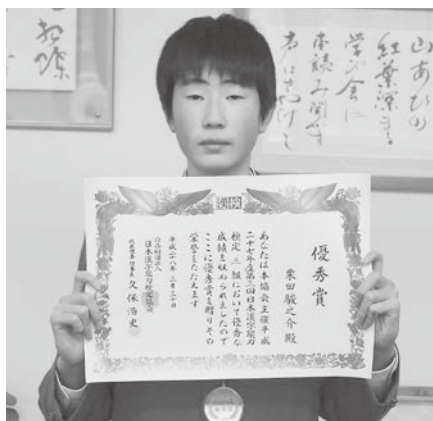 山あひの
紅葉深まる
学び舎に
本読み聞かす
声はさやけし
漢検
優秀賞
栗田駿之介 殿
あなたは本協会主催平成
二十七年度第三回日本漢字能力
検定 三級において優秀な
成績を収められましたので
ここに優秀賞を贈りその
栄誉をたたえます
平成二十八年 三月三十日
公益財団法人
日本漢字能力検定協会
代表理事 理事長 久保浩史